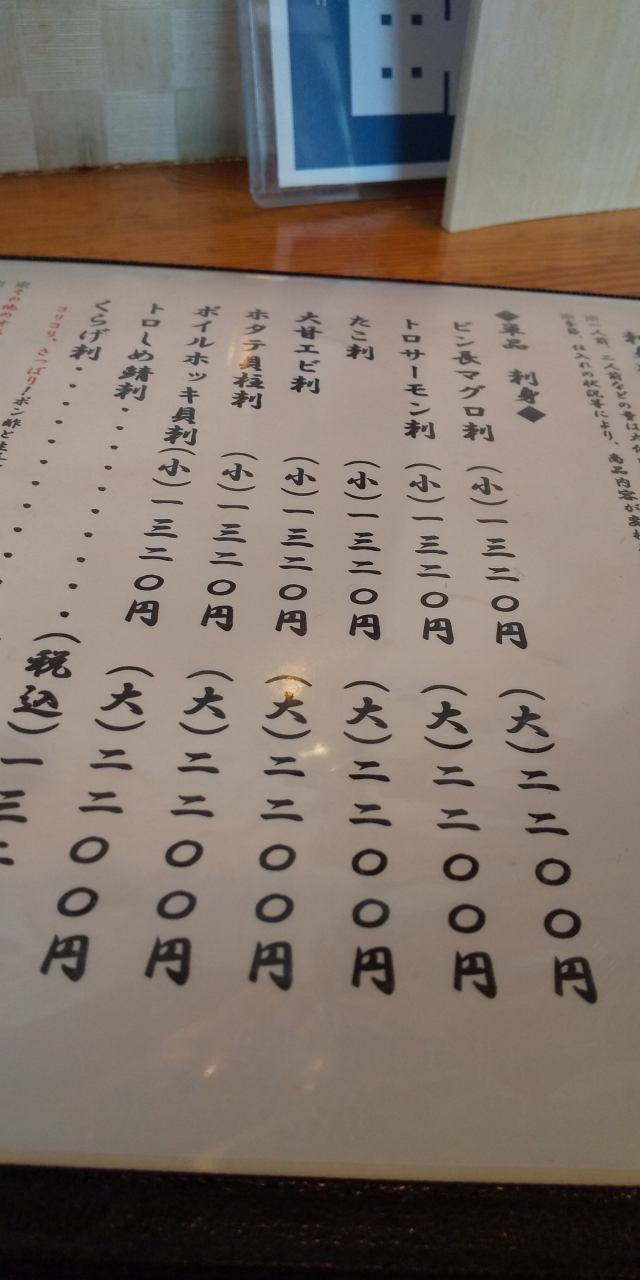 ※一人前、二人前などの量は大体
※季節、仕入れの状況等により、商品内容が
◆単品 刺身◆
ビン長マグロ刺 (小)一三二〇円 (大)二二〇〇円
トロサーモン刺 (小)一三二〇円 (大)二二〇〇円
たこ刺 (小)一三二〇円 (大)二二〇〇円
大甘エビ刺 (小)一三二〇円 (大)二二〇〇円
ホタテ貝柱刺 (小)一三二〇円 (大)二二〇〇円
ボイルホッキ貝刺 (小)一三二〇円 (大)二二〇〇円
トロしめ鯖刺・・・・・・・(税込)一三二
くらげ刺・・・・・・・・
コリコリ、さっぱり!ポン酢と